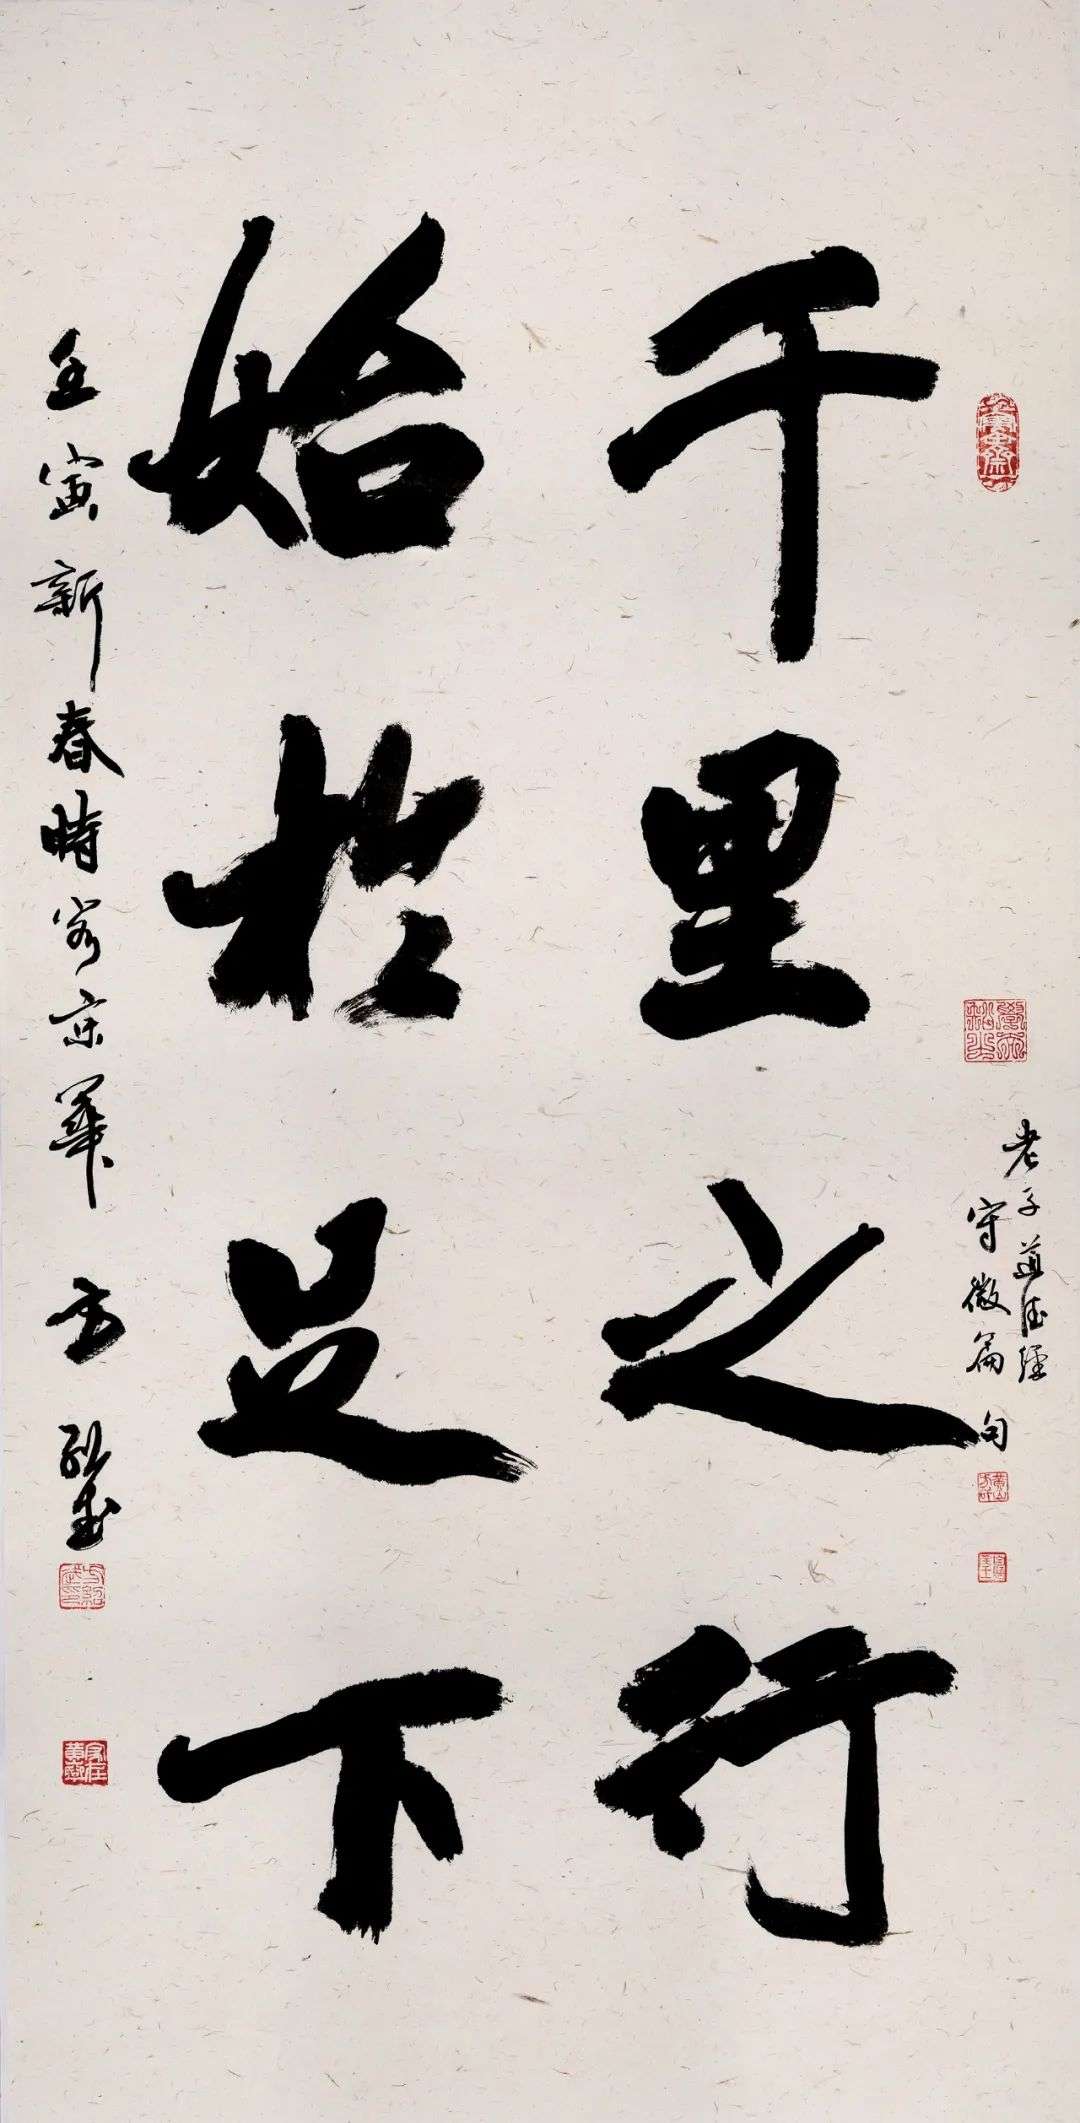 千里之行
始於足下
老子道德經
守微篇句
壬寅新春時客京華 方紹武